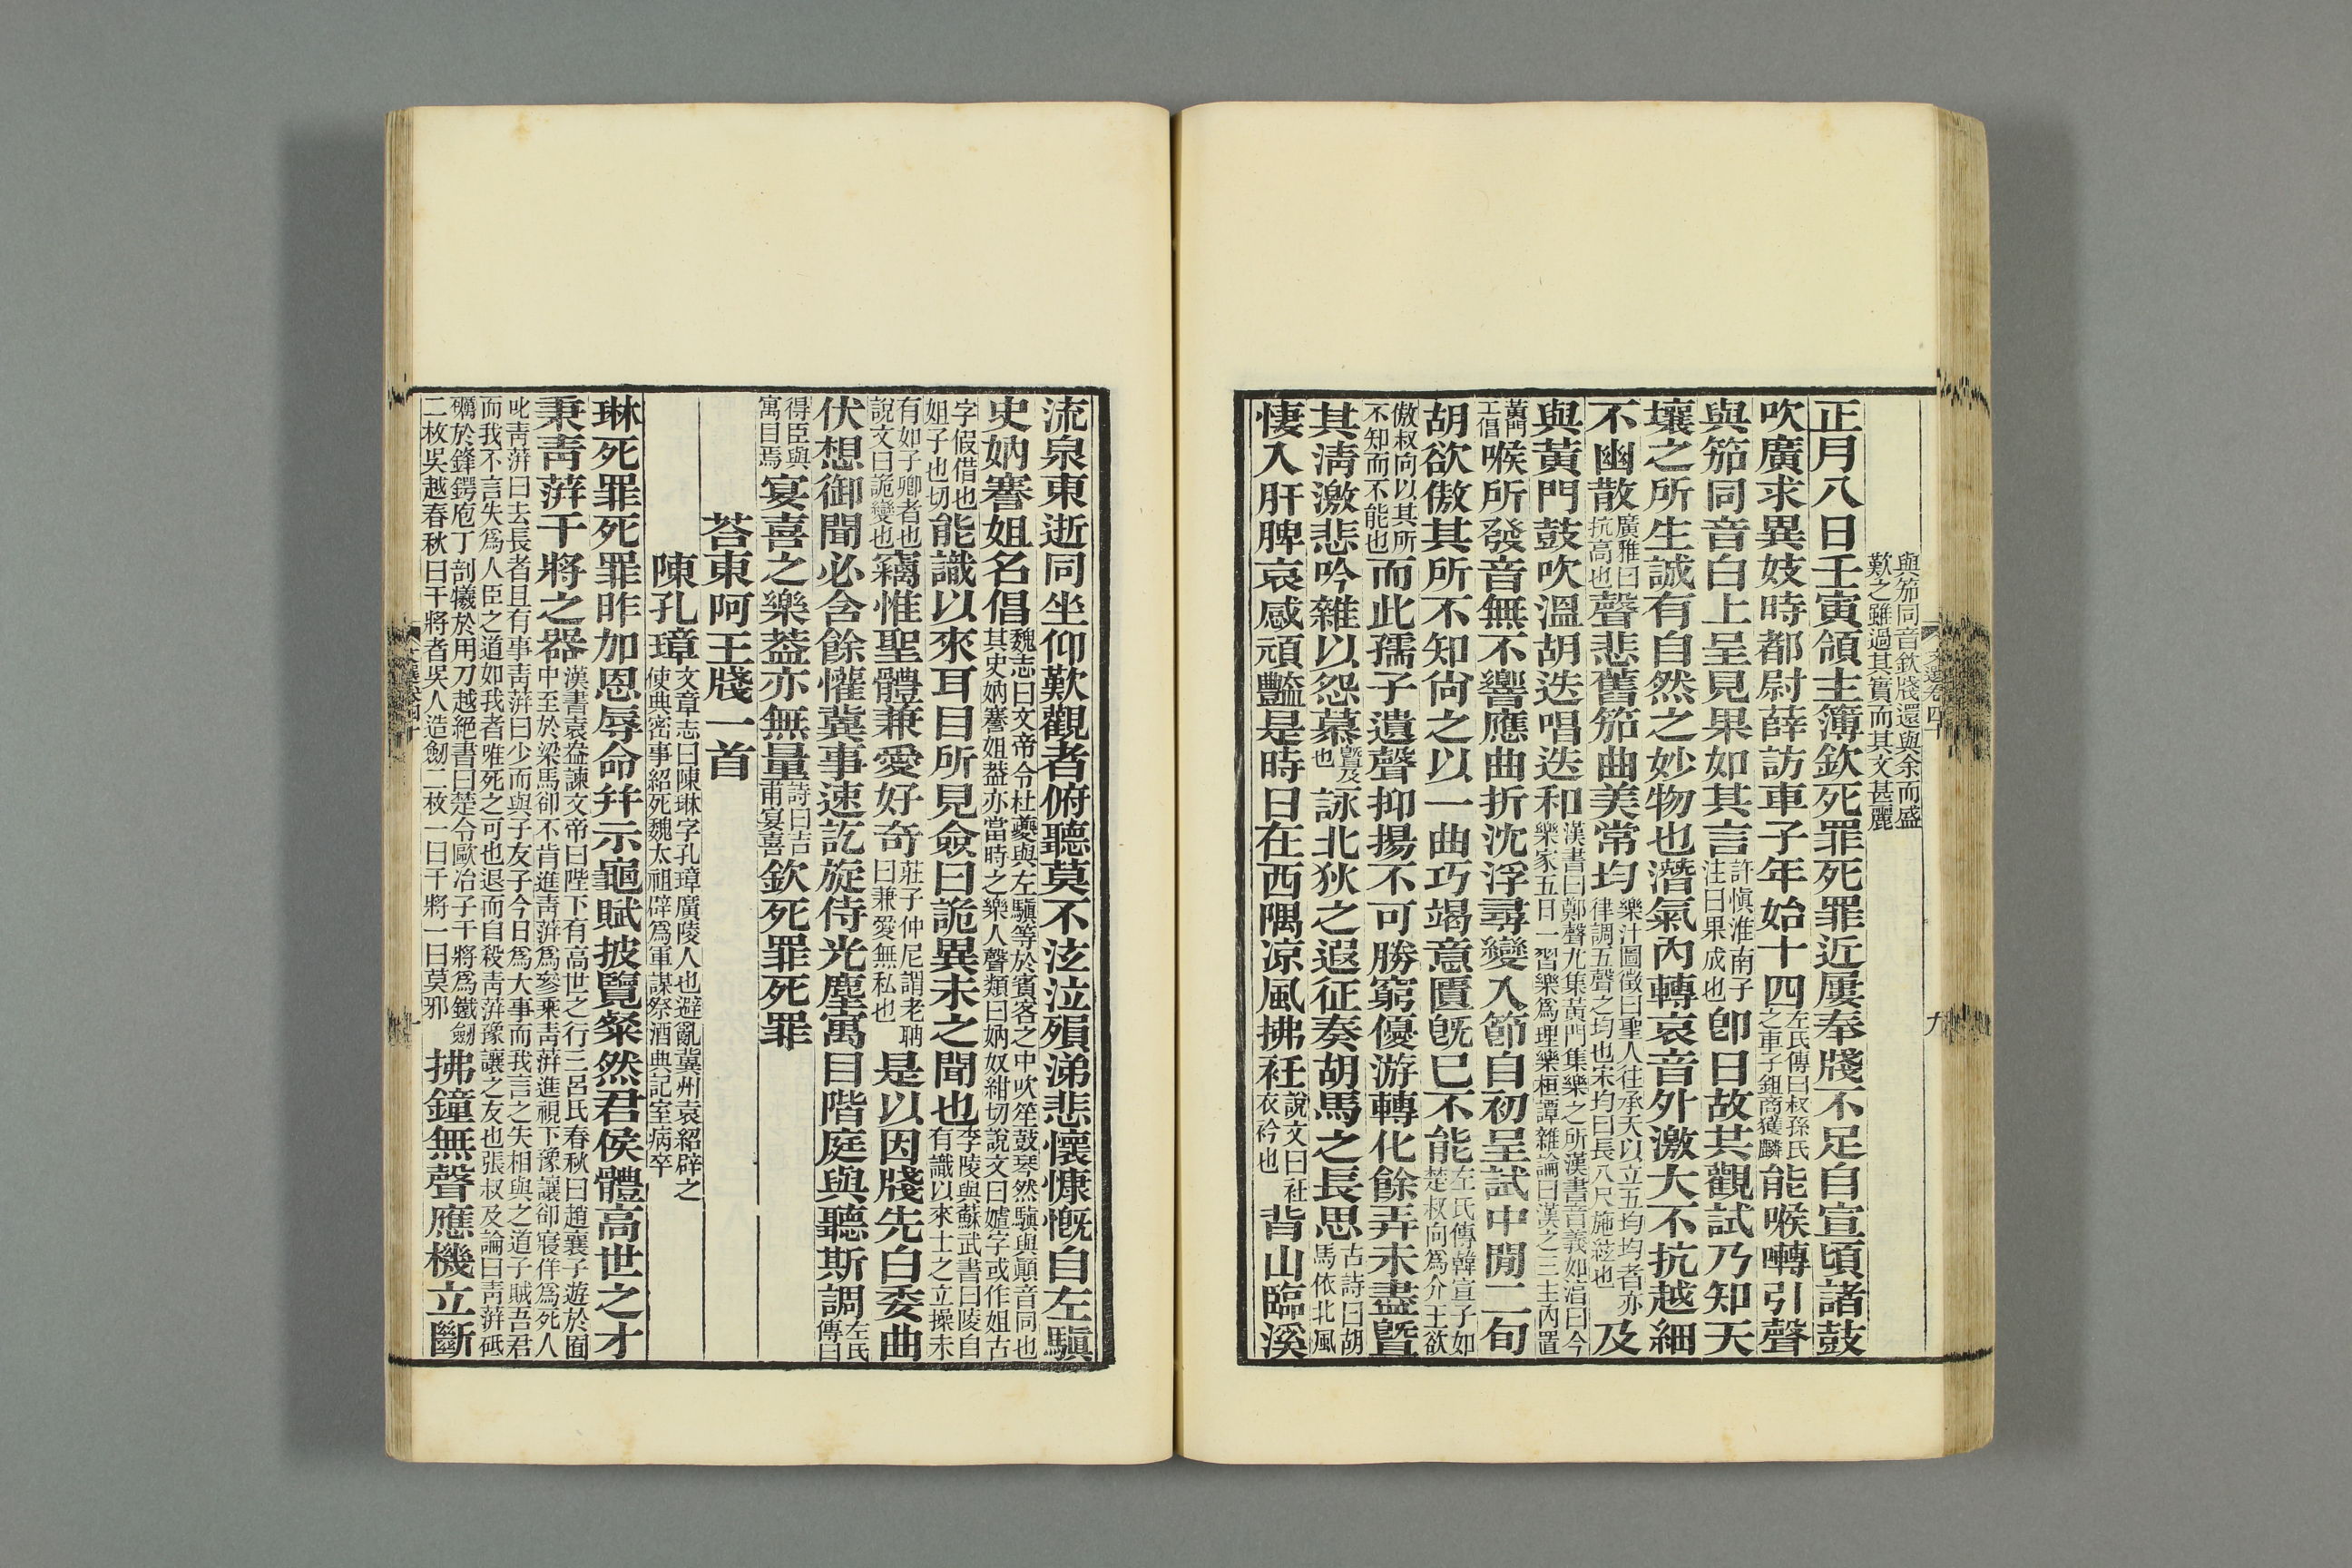 與笳同音欽牋還與余而盛
歎之雖過其實而其文甚麗
正月八日壬寅領主簿欽死罪死罪近屢奉牋不足自宣頃諸鼓
吹廣求異妓時都尉薛訪車子年始十四左氏傳曰叔孫氏之車子鉏商獲麟能喉囀引聲
與笳同音白上呈見果如其言許愼淮南子注曰果成也卽日故共觀試乃知天
壤之所生誠有自然之妙物也潛氣內轉哀音外激大不抗越細
不幽散廣雅曰抗高也聲悲舊笳曲美常均樂汁圖徵曰聖人往承天以立五均均者亦律調五聲之均也宋均曰長八尺施絃也及
與黃門鼓吹溫胡迭唱迭和漢書曰鄭聲尤集黃門集樂之所漢書音義如淳曰今樂家五日一習樂爲理樂桓譚雜論曰漢之三主內置
黃門工倡喉所發音無不響應曲折沈浮尋變入節自初呈試中閒二旬
胡欲傲其所不知尙之以一曲巧竭意匱旣已不能左氏傳韓宣子如楚叔向爲介王欲
傲叔向以其所不知而不能也而此孺子遺聲抑揚不可勝窮優游轉化餘弄未盡曁
其淸激悲吟雜以怨慕曁及也詠北狄之遐征奏胡馬之長思古詩曰胡馬依北風
悽入肝脾哀感頑豔是時日在西隅凉風拂衽說文曰衽衣衿也背山臨溪
文選卷四十
九
流泉東逝同坐仰歎觀者俯聽莫不泫泣殞涕悲懷慷慨自左騏
史妠謇姐名倡魏志曰文帝令杜夔與左騏等於賓客之中吹笙鼓琴然騏與顚音同也其史妠謇姐葢亦當時之樂人聲類曰妠奴紺切說文曰嫭字或作姐古
字假借也姐子也切能識以來耳目所見僉曰詭異未之聞也李陵與蘇武書曰陵自有識以來士之立操未
有如子卿者也說文曰詭變也竊惟聖體兼愛好奇莊子仲尼謂老聃曰兼愛無私也是以因牋先白委曲
伏想御聞必含餘懽冀事速訖旋侍光塵寓目階庭與聽斯調左氏傳曰
得臣與寓目焉宴喜之樂葢亦無量詩曰吉甫宴喜欽死罪死罪
荅東阿王牋一首
陳孔璋文章志曰陳琳字孔璋廣陵人也避亂冀州袁紹辟之使典密事紹死魏太祖辟爲軍謀祭酒典記室病卒
琳死罪死罪昨加恩辱命幷示龜賦披覽粲然君侯體高世之才
秉靑蓱干將之器漢書袁盎諫文帝曰陛下有高世之行三呂氏春秋曰趙襄子遊於囿中至於梁馬卻不肯進靑蓱爲參乘靑蓱進視下豫讓卻寢佯爲死人
叱靑蓱曰去長者且有事靑蓱曰少而與子友子今日爲大事而我言之失相與之道子賊吾君而我不言失爲人臣之道如我者唯死之可也退而自殺靑蓱豫讓之友也張叔及論曰靑蓱砥
礪於鋒鍔庖丁剖犧於用刀越絕書曰楚令歐冶子干將爲鐵劒二枚吳越春秋曰干將者吳人造劒二枚一曰干將一曰莫邪拂鐘無聲應機立斷